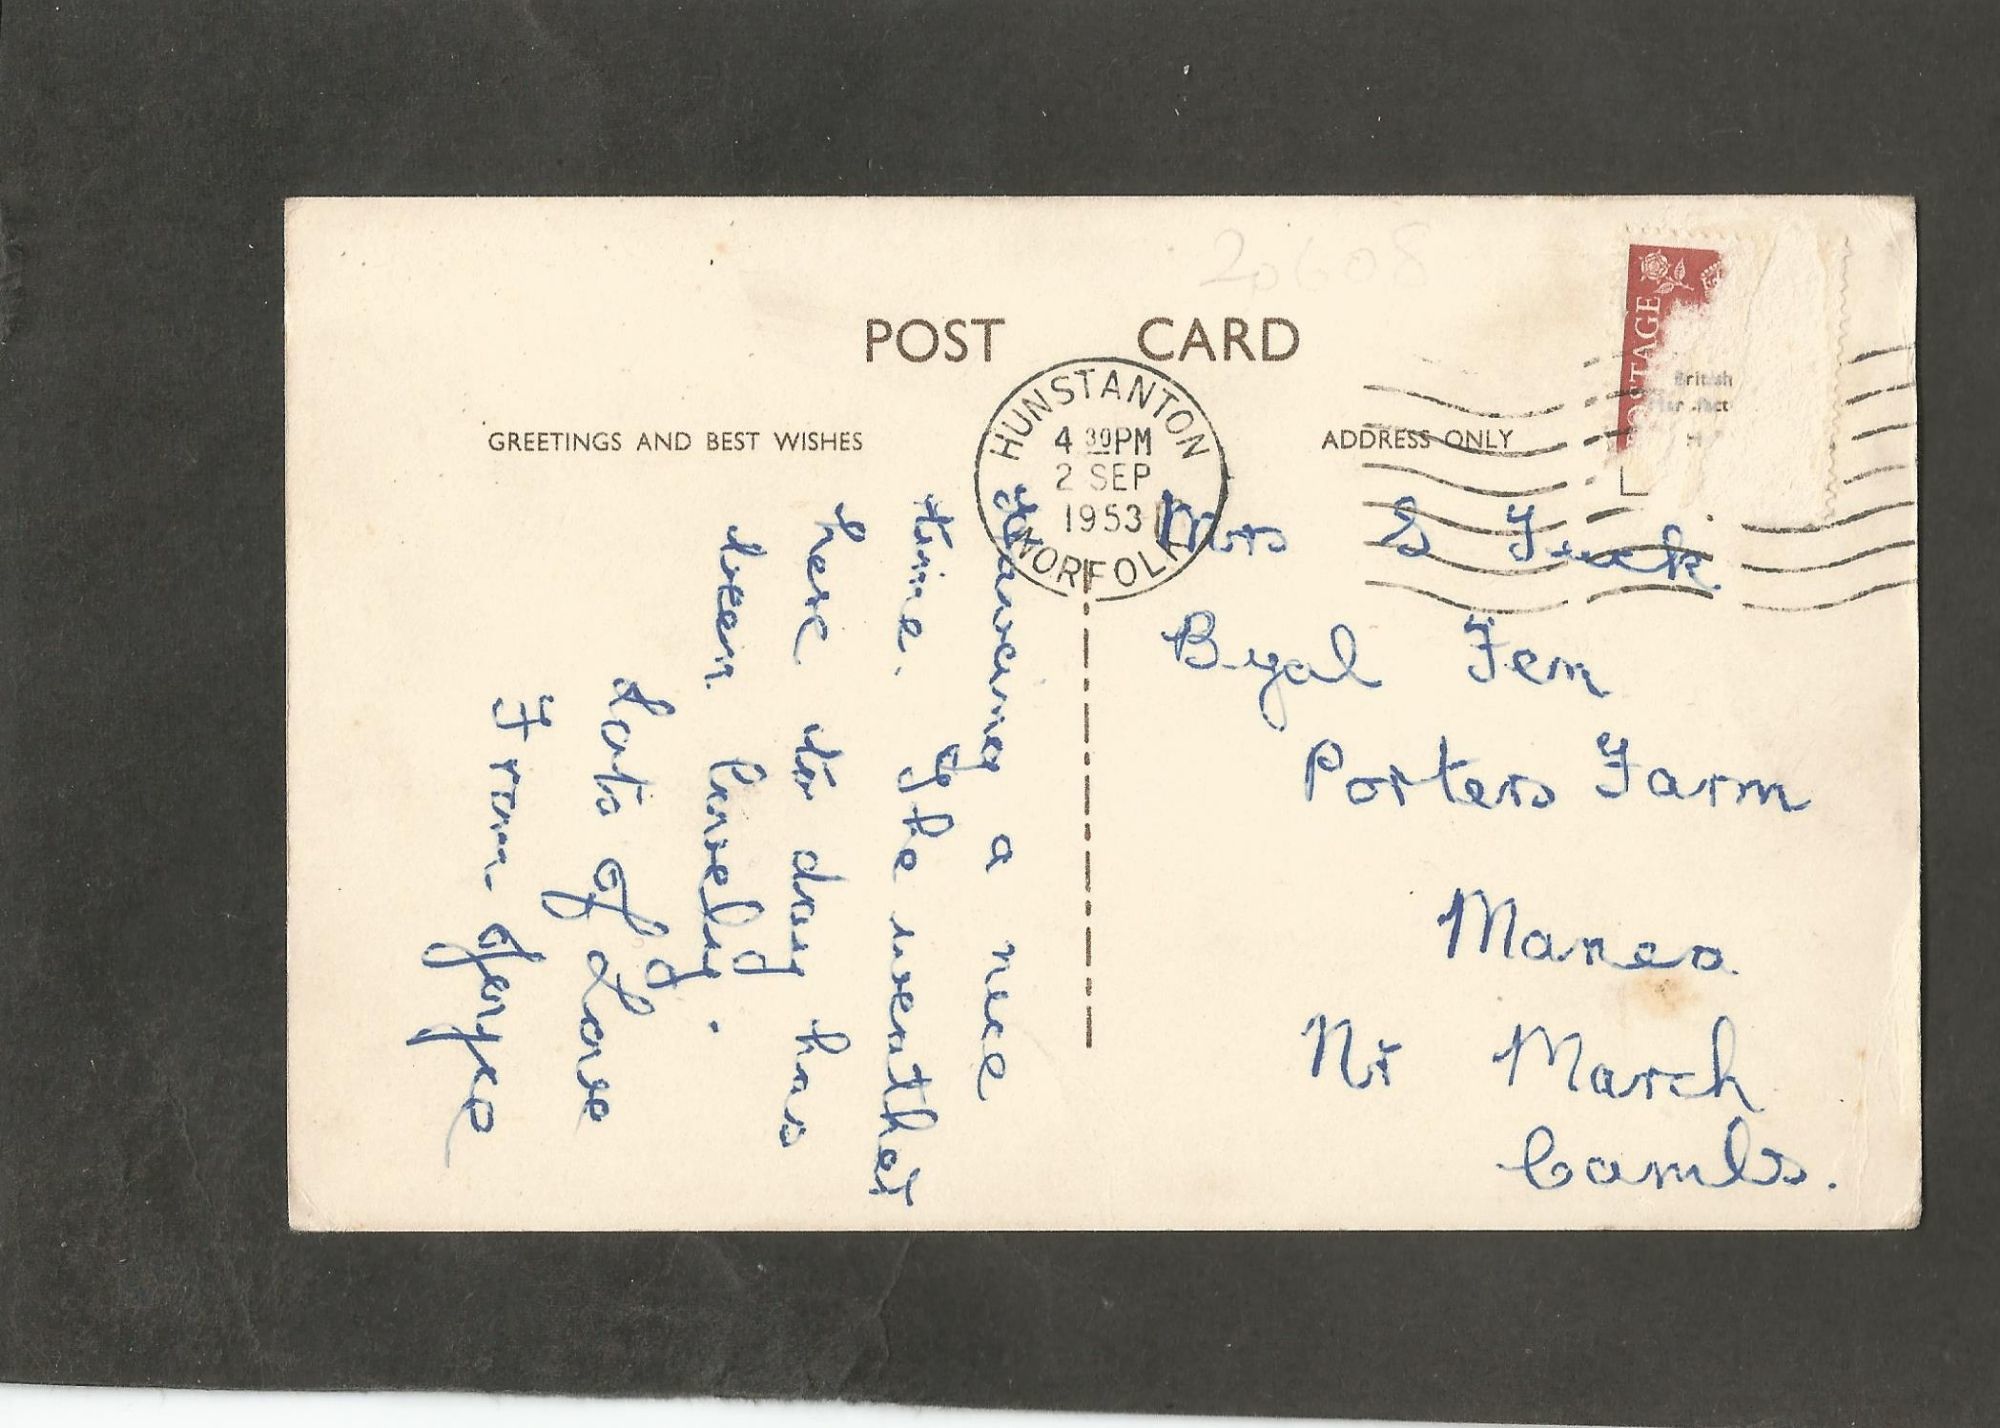 20608
POST CARD
POSTAGE
British
GREETINGS AND BEST WISHES
ADDRESS ONLY
HUNSTANTON
4 30PM
2 SEP
1953
NORFOLK
Having a nice
time. The weather
here to day has
been lovely.
Lots of Love
From
Mrs S Tuck
Byal Fen
Porters Farm
Manea
Nr March
Cambs.